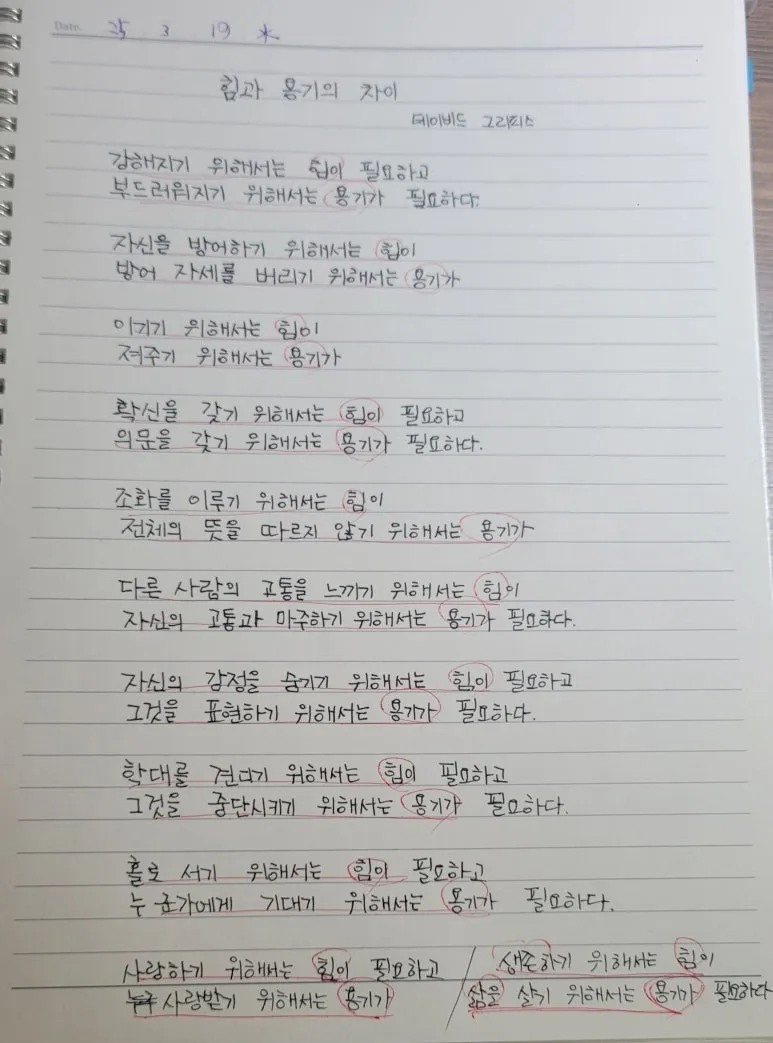 Date. 25 3 19 水
힘과 용기의 차이
데이비드 그리피스
강해지기 위해서는 힘이 필요하고
부드러워지기 위해서는 용기가 필요하다.
자신을 방어하기 위해서는 힘이
방어 자세를 버리기 위해서는 용기가
이기기 위해서는 힘이
져주기 위해서는 용기가
확신을 갖기 위해서는 힘이 필요하고
의문을 갖기 위해서는 용기가 필요하다.
조화를 이루기 위해서는 힘이
전체의 뜻을 따르지 않기 위해서는 용기가
다른 사람의 고통을 느끼기 위해서는 힘이
자신의 고통과 마주하기 위해서는 용기가 필요하다.
자신의 감정을 숨기기 위해서는 힘이 필요하고
그것을 표현하기 위해서는 용기가 필요하다.
학대를 견디기 위해서는 힘이 필요하고
그것을 중단시키기 위해서는 용기가 필요하다.
홀로 서기 위해서는 힘이 필요하고
누군가에게 기대기 위해서는 용기가 필요하다.
사랑하기 위해서는 힘이 필요하고
사랑받기 위해서는 용기가
생존하기 위해서는 힘이
삶을 살기 위해서는 용기가 필요하다